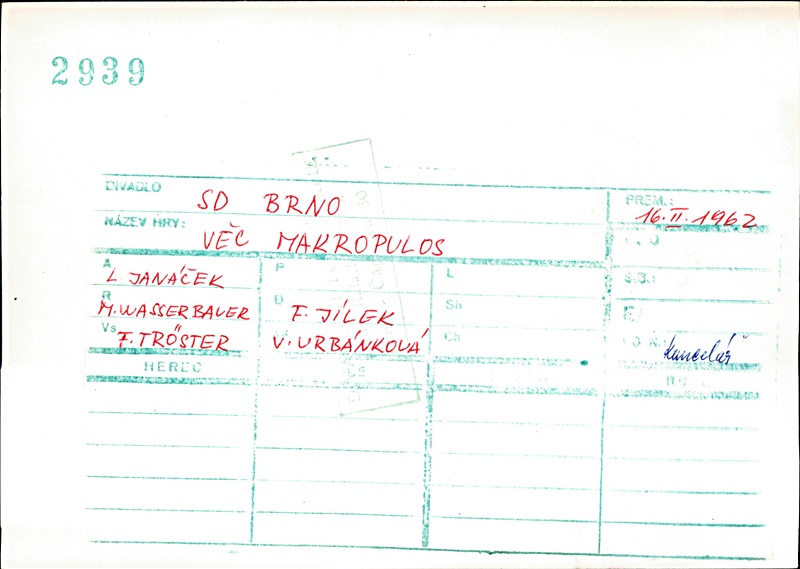 2939
DIVADLO SD BRNO PREM.: 16.II.1962
NÁZEV HRY: VĚC MAKROPULOS
A L JANÁČEK P L
R M. WASSERBAUER D F. JÍLEK Sh
Vs F. TRÖSTER V. URBÁNKOVÁ Ch kancelář
HEREC